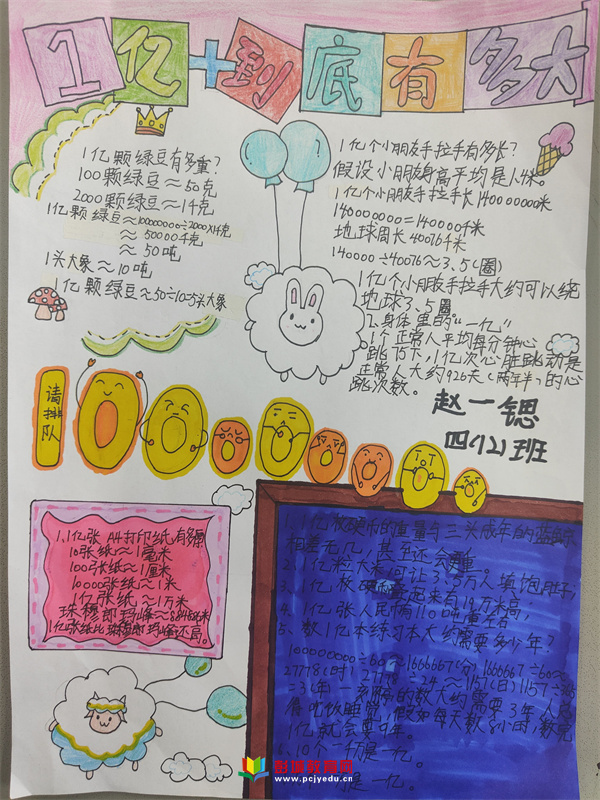 1亿+到底有多大
1亿颗绿豆有多重?
100颗绿豆≈50克
2000颗绿豆≈14克
1亿颗绿豆≈100000000÷2000×14克
≈50000千克
≈50吨
1头大象≈10吨
1亿颗绿豆≈50÷10=5头大象
1亿个小朋友手拉手有多长?
假设小朋友身高平均是1.4米。
1亿个小朋友手拉手长140000000米
140000000=140000千米
地球周长40076千米
140000÷40076≈3.5(圈)
1亿个小朋友手拉手大约可以绕
地球3.5圈
2.身体里的“一亿”
1个正常人平均每分钟心
跳75下,1亿次心脏跳动是
正常人大约926天(两年半)的心
跳次数。
赵一锶
四(12)班
请排队
100000000
1.1亿张A4打印纸有多厚
10张纸≈1毫米
100张纸≈1厘米
10000张纸≈1米
1亿张纸≈1万米
珠穆郎玛峰≈8848.86米
1亿张纸比珠穆郎玛峰还高。
1.1亿枚硬币的重量与三头成年的蓝鲸
相差无几,甚至还会更重。
2.1亿粒大米可让3.5万人填饱肚子,
3.1亿枚硬币叠起来有19万米高,
4.1亿张人民币有110吨重左右
5.数1亿本练习本大约需要多少年?
100000000÷60≈1666667(分) 1666667÷60≈
27778(时) 27778÷24≈1157(日) 1157÷365
≈3(年)一刻不停的数大约需要3年,人总
得吃饭睡觉,假如每天数8小时,数完
1亿就会要9年。
6.10个一千万是一亿。
是一亿。
www.pcjyedu.cn